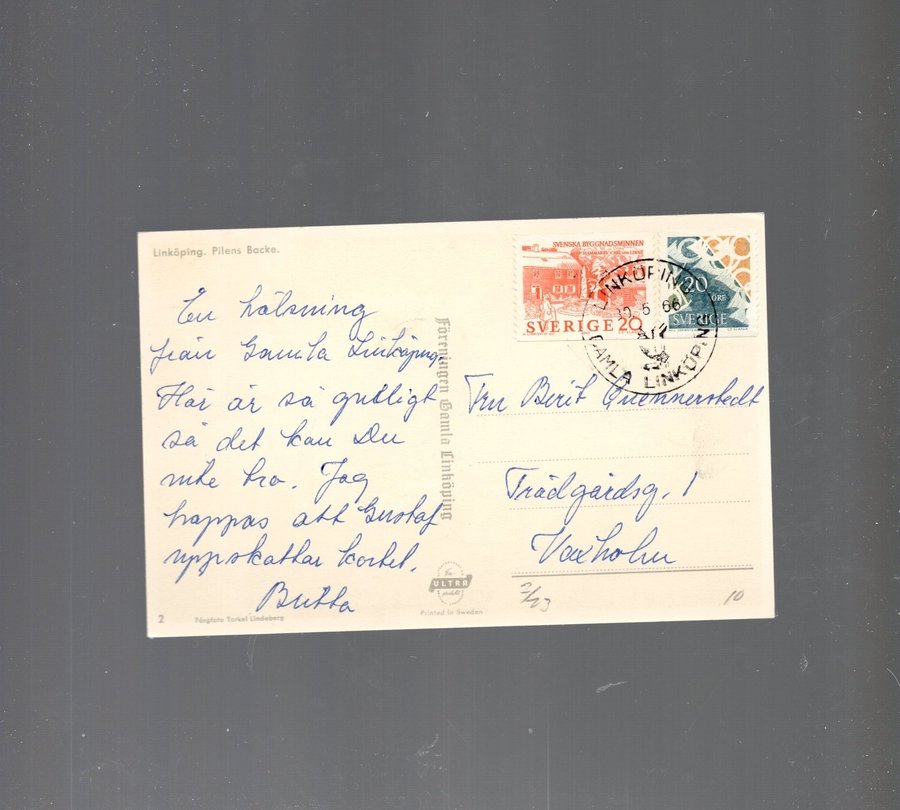 Linköping. Pilens Backe.
En hälsning
från Gamla Linköping.
Här är så gulligt
så det kan Du
inte tro. Jag
hoppas att Gustaf
uppskattar kortet.
Britta
2
Färgfoto Torkel Lindeberg
Föreningen Gamla Linköping
En
ULTRA
produkt
Printed in Sweden
SVENSKA BYGGNADSMINNEN
HAMMARBY CARL VON LINNÉ
SVERIGE 20
20 ÖRE
SVERIGE
LINKÖPING
30 5 66
GAMLA LINKÖPING
Fru Berit Quennerstedt
Trädgårdsg. 1
Vaxholm
10